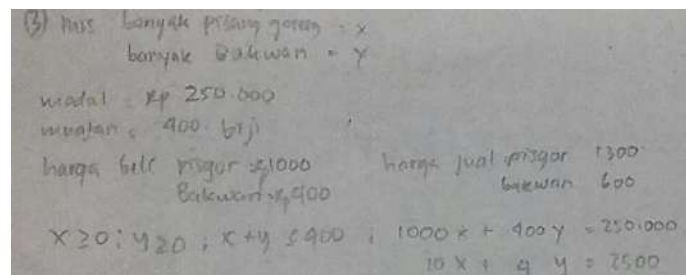 (3) Mis banyak pisang goreng = x
banyak Bakwan = y
modal = Rp 250.000
muatan = 400 biji
harga beli pisgor Rp 1000 harga jual pisgor 1300
Bakwan Rp 400 bakwan 600
x ≥ 0 ; y ≥ 0 ; x + y ≤ 400 ; 1000 x + 400 y = 250.000
10 x + 4 y = 2500